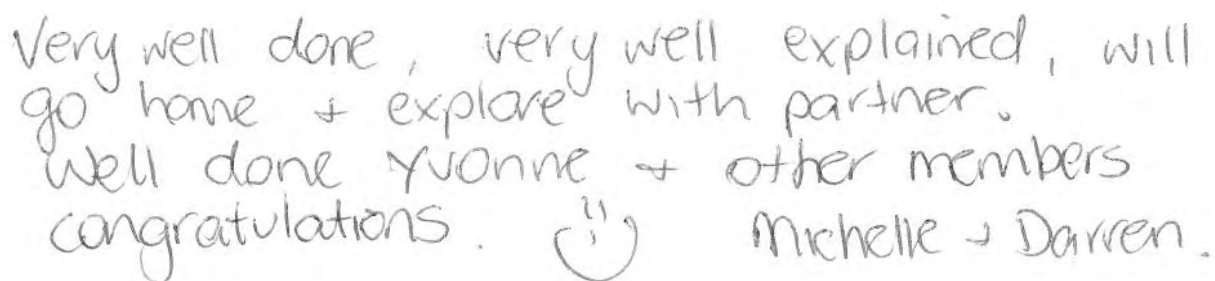 Very well done, very well explained, will
go home + explore with partner.
Well done Yvonne + other members
congratulations. Michelle + Darren.